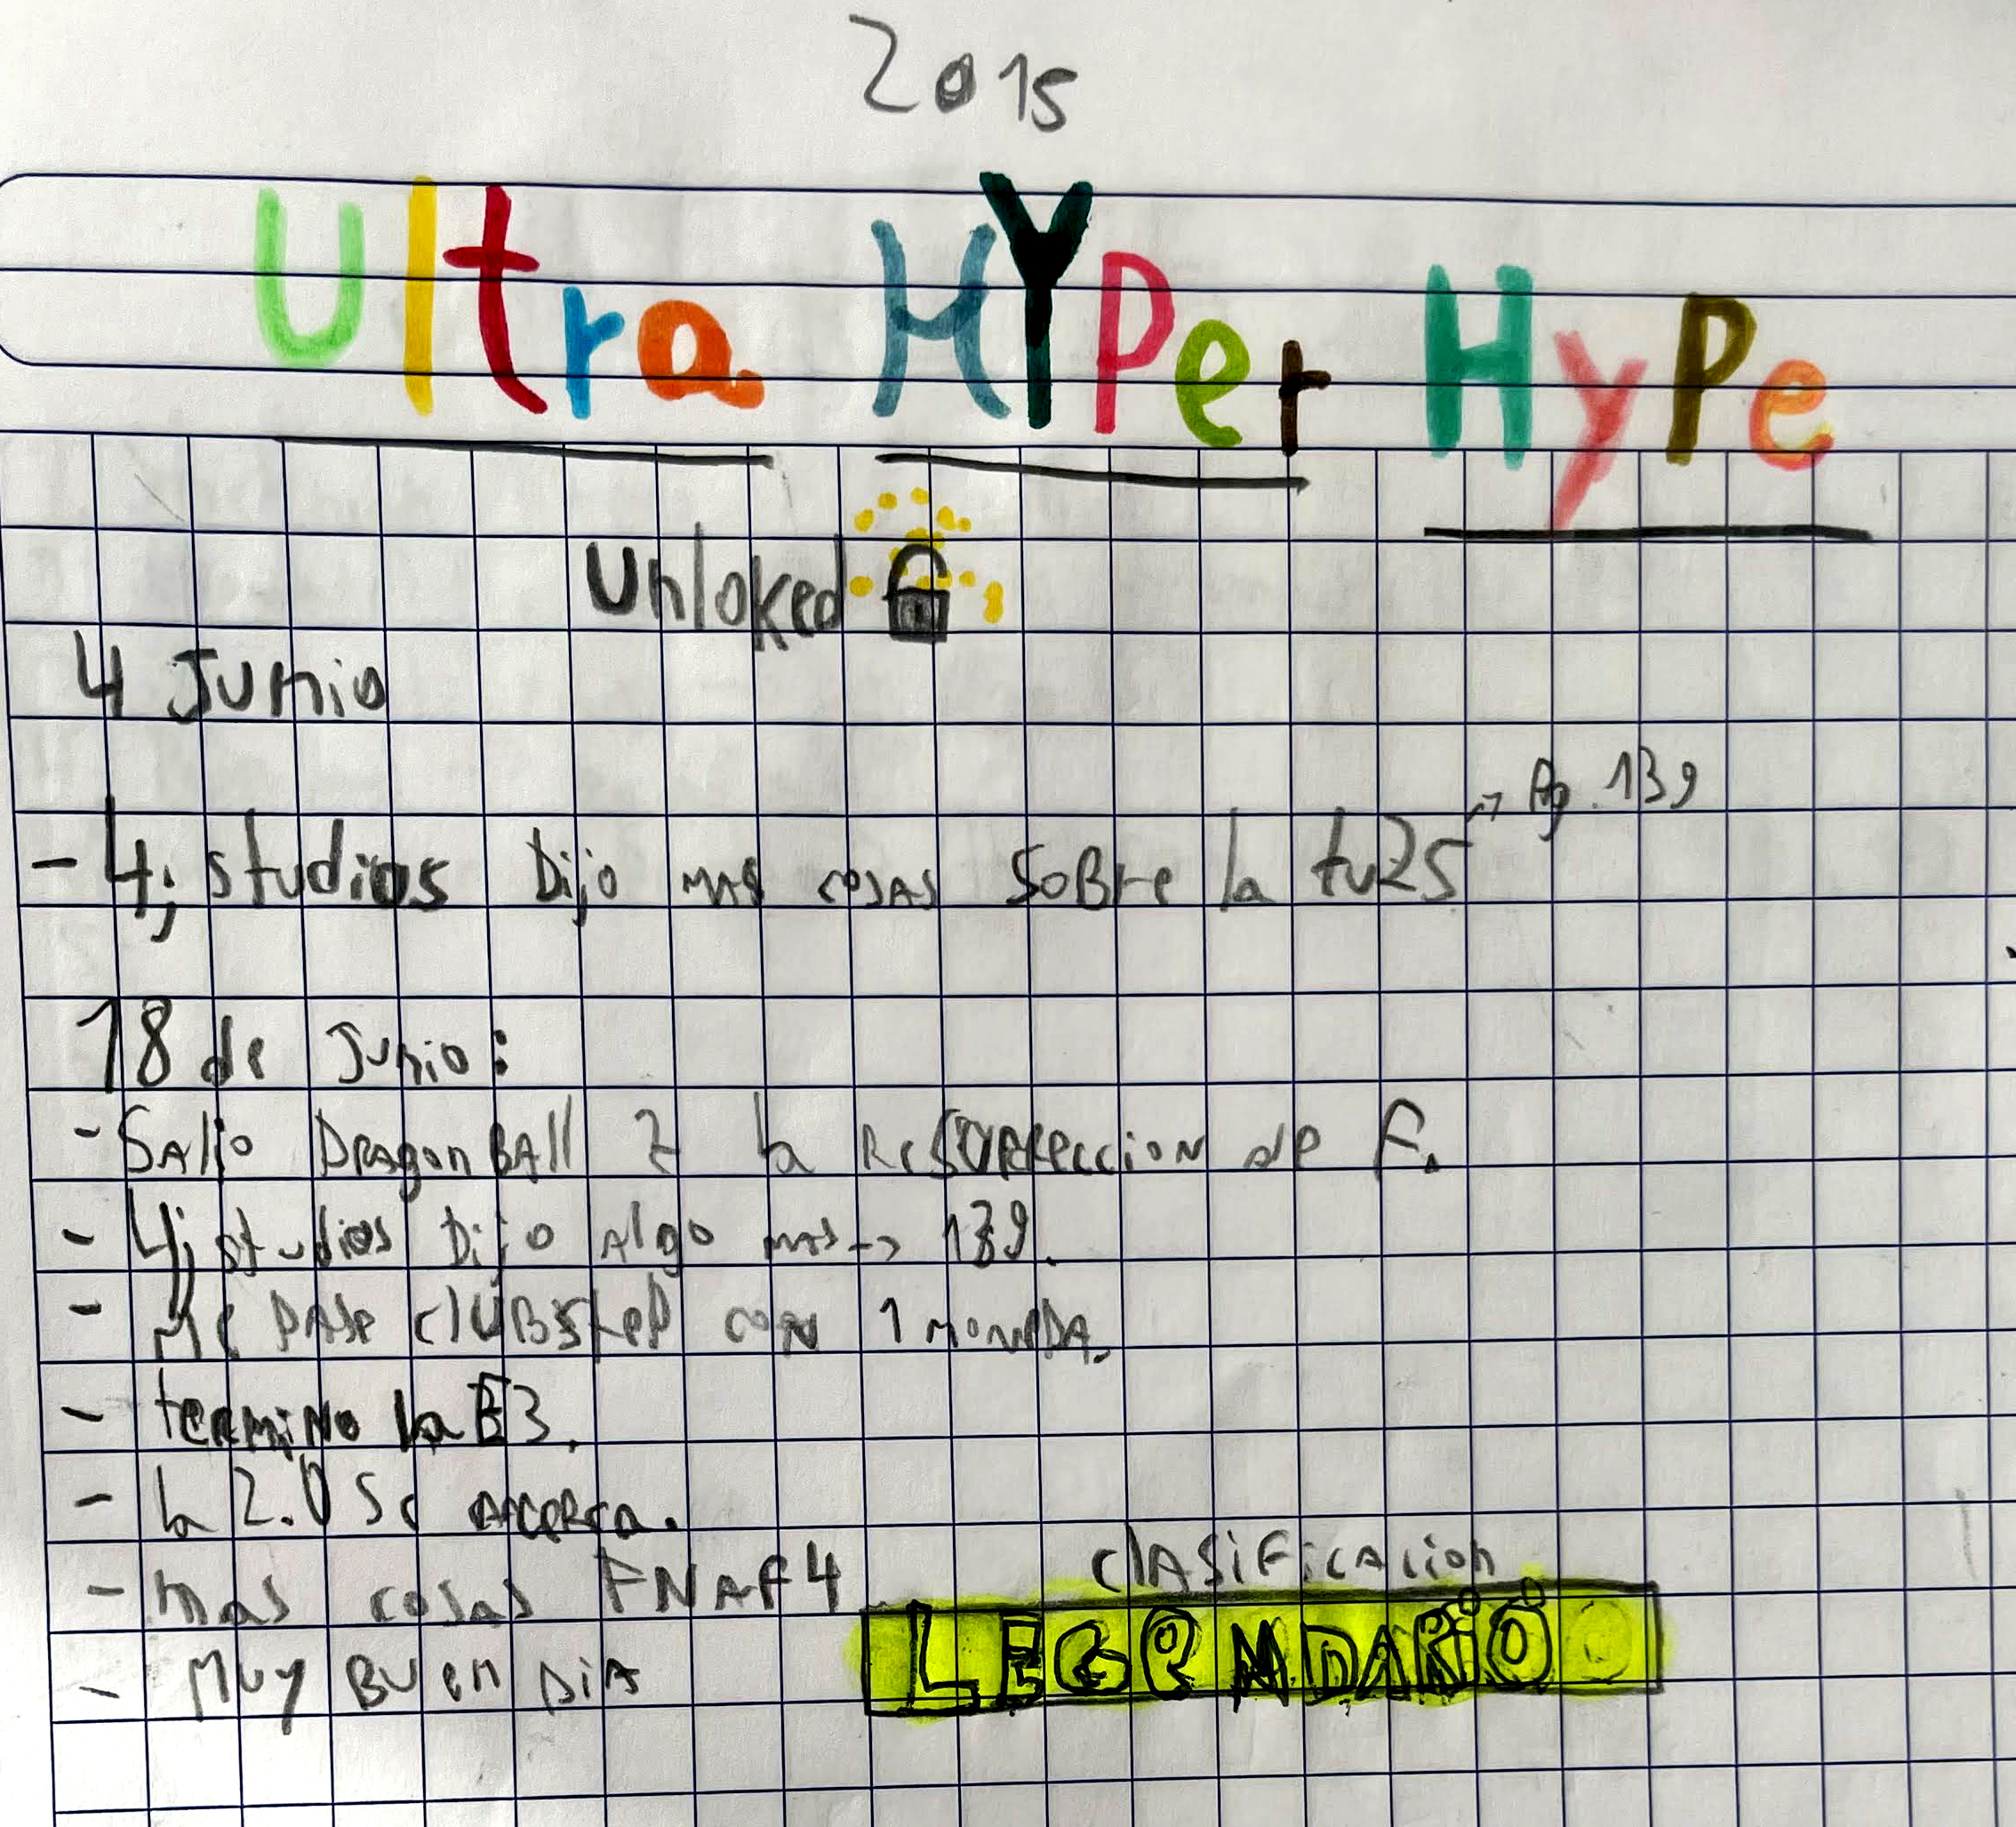 2015
Ultra HYPer HyPe
Unloked
4 Junio
→ Pg. 139
- 4j studios Dijo mas cosas SoBre la tu25
18 de Junio:
- Salio Dragon Ball Z la Resurreccion de F.
- 4j studios Dijo algo mas → 139.
- Me pase clubstep con 1 moneda.
- termino la E3.
- la 2.0 Se acerca.
- mas cosas FNAF4
clasificacion
LEGENDARIO
- Muy Buen Dia